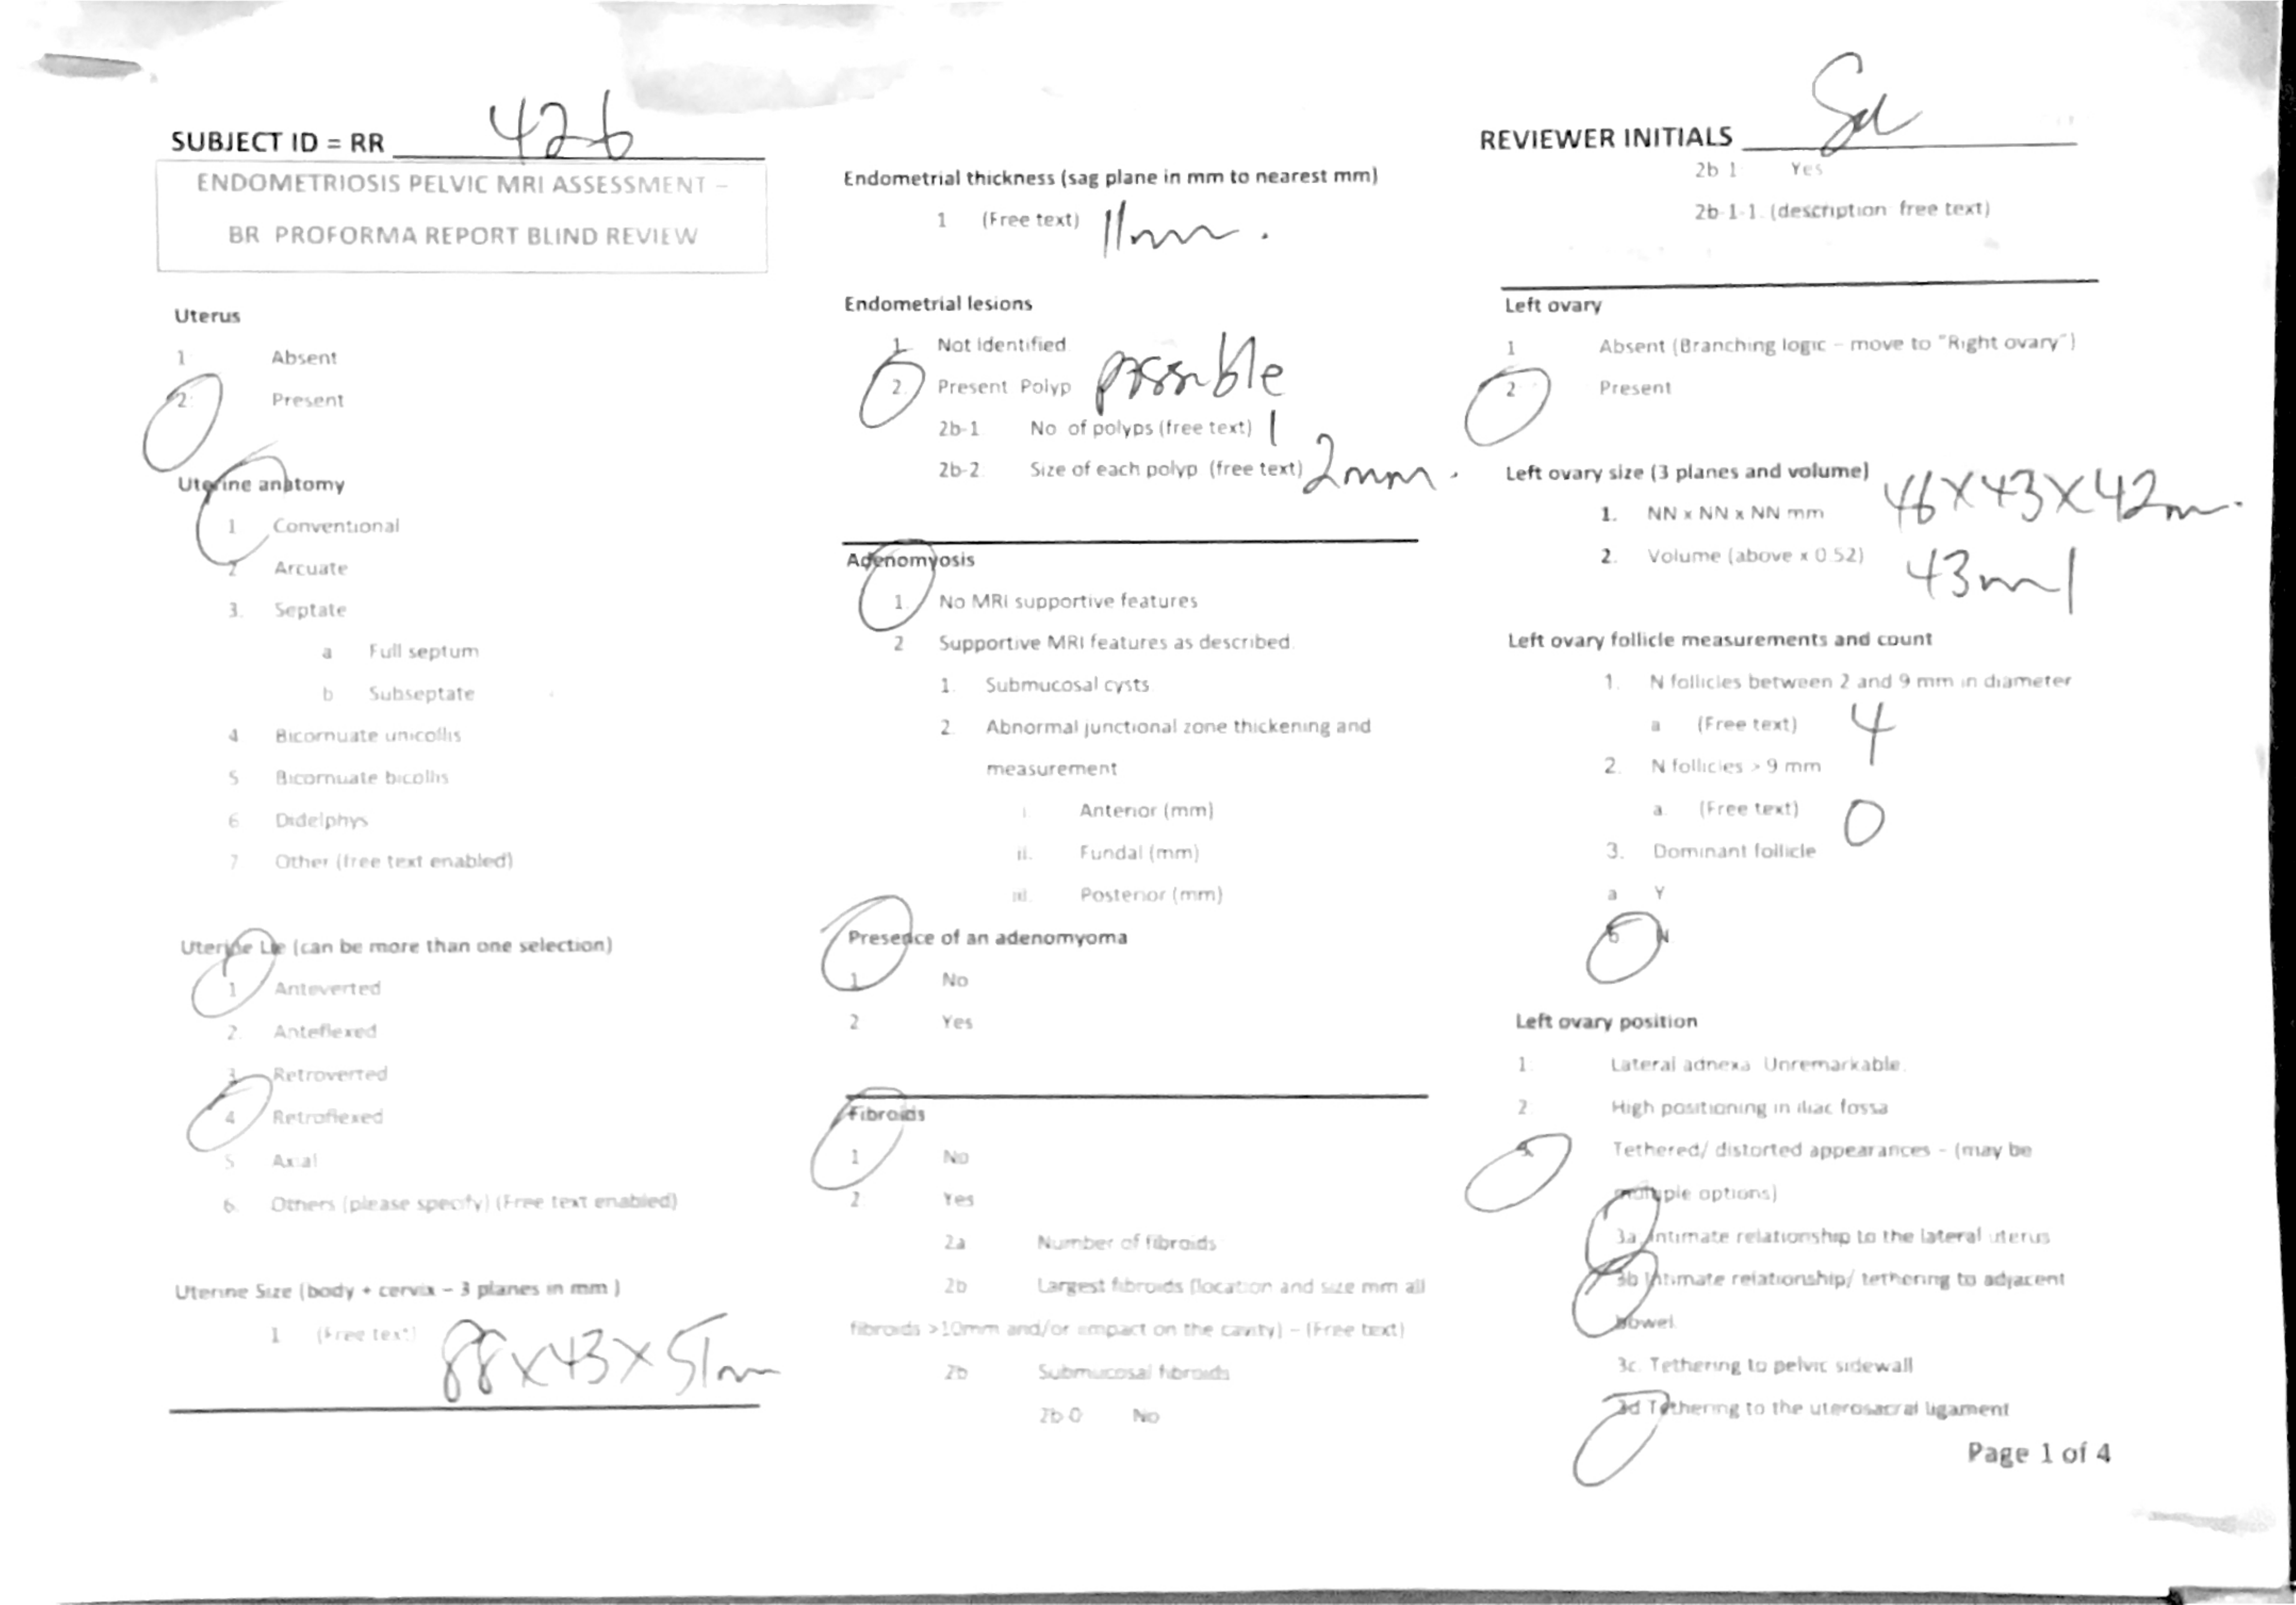 SUBJECT ID = RR 426
ENDOMETRIOSIS PELVIC MRI ASSESSMENT –
BR PROFORMA REPORT BLIND REVIEW
Uterus
1 Absent
2. Present
Uterine anatomy
1 Conventional
2 Arcuate
3. Septate
a Full septum
b Subseptate
4 Bicornuate unicollis
5 Bicornuate bicollis
6 Didelphys
7 Other (free text enabled)
Uterine Lie (can be more than one selection)
1 Anteverted
2. Anteflexed
3 Retroverted
4 Retroflexed
5 Axial
6. Others (please specify) (Free text enabled)
Uterine Size (body + cervix – 3 planes in mm )
1 (Free text) 88x43x51m
Endometrial thickness (sag plane in mm to nearest mm)
1 (Free text) 11mm.
Endometrial lesions
1. Not identified
2. Present Polyp possible
2b-1 No of polyps (free text) 1
2b-2. Size of each polyp (free text) 2mm.
Adenomyosis
1. No MRI supportive features
2 Supportive MRI features as described.
1. Submucosal cysts.
2. Abnormal junctional zone thickening and
measurement
i Anterior (mm)
ii. Fundal (mm)
iii. Posterior (mm)
Presence of an adenomyoma
1 No
2 Yes
Fibroids
1 No
2 Yes
2a Number of fibroids
2b Largest fibroids (location and size mm all
fibroids >10mm and/or impact on the cavity) – (Free text)
2b Submucosal fibroids
2b 0 No
REVIEWER INITIALS
2b 1 Yes
2b-1-1. (description free text)
Left ovary
1 Absent (Branching logic – move to "Right ovary")
2 Present
Left ovary size (3 planes and volume)
1. NN x NN x NN mm 46x43x42m.
2. Volume (above x 0.52) 43ml
Left ovary follicle measurements and count
1. N follicles between 2 and 9 mm in diameter
a (Free text) 4
2. N follicles > 9 mm
a. (Free text) 0
3. Dominant follicle
a Y
b N
Left ovary position
1. Lateral adnexa Unremarkable.
2. High positioning in iliac fossa
Tethered/ distorted appearances – (may be
multiple options)
3a Intimate relationship to the lateral uterus
3b Intimate relationship/ tethering to adjacent
bowel.
3c. Tethering to pelvic sidewall
3d Tethering to the uterosacral ligament
Page 1 of 4